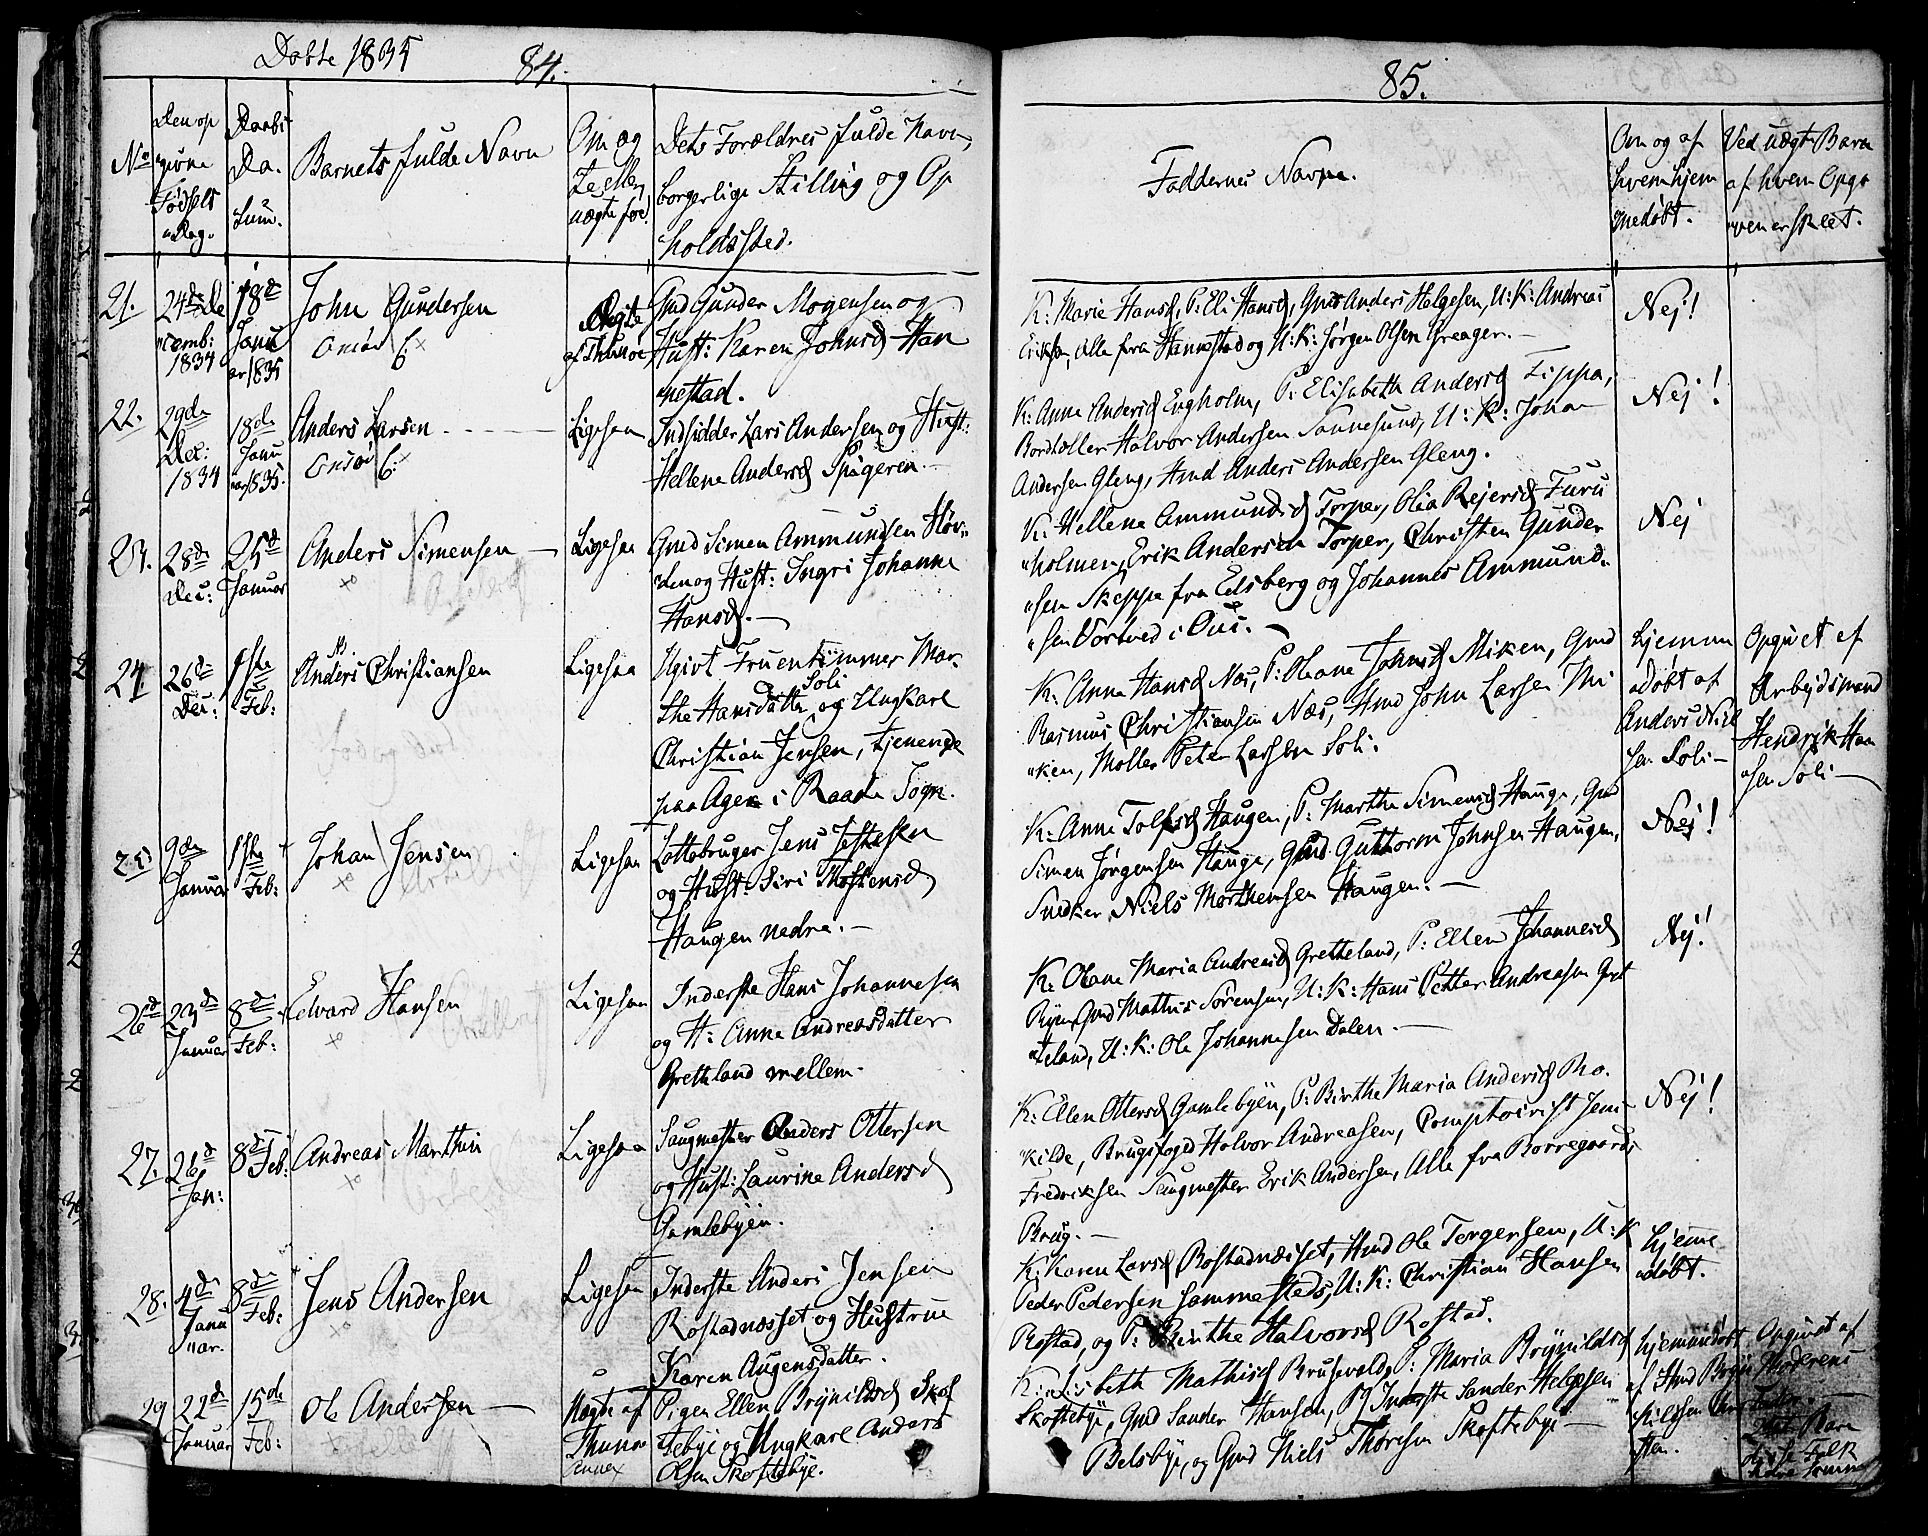 Døbte 1835
84.
No
Den op
givne
Fødsels
Dag.
Daabs
Da-
tum.
Barnets fulde Navn
Om æg
te eller
uægte fød.
Dets Forældres fulde Navn,
borgerlige Stilling og Op
holdssted.
21.
24de De
cemb:
1834
18de
Janu
ar 1835
John Gundersen
Ægte
af Thunøe
Gmd Gunder Mogensen og
Hust: Karen Johnsd Han
nestad.
22.
29de
Dec:
1834
18de
Janu
ar 1835.
Anders Larsen
Ligesaa
Indsidder Lars Andersen og Hust:
Hellene Andersd Spageren.
23.
28de
Dec:
25de
Januar
Anders Simensen
Ligesaa
Gmd Simen Ammundsen Høv-
den og Hust: Ingri Johanne
Hansd.
24
26de
Dec:
1ste
Feb:
Anders Christiansen
Ligesaa
Ugivt Fruentimmer Mar-
the Hansdatter Soli og Ungkarl
Christian Jensen, tjenende
paa Agen i Raade Sogn.
25
9de
Januar
1ste
Feb:
Johan Jensen
Ligesaa
Lottebruger Jens
og Hust: Siri Thostensd
Haugen nedre.
26
23de
Januar
8de
Feb:
Edvard Hansen
Ligesaa
Inderste Hans Johannesen
og H: Anne Andreasdatter
Gretteland mellem.
27.
26de
Jan:
8de Feb:
Andreas Marthin
Ligesaa
Saugmester Anders Ottersen
og Hust: Laurine Andersd
Gamlebyen.
28.
4de
Janu
ar.
8de
Feb:
Jens Andersen
Ligesaa
Inderste Anders Jensen
Rostadnesset og Hustrue
Karen Augensdatter.
29
22de
Januar
15de
Feb:
Ole Andersen
Uægte af
Thunøe
Annex
Pigen Ellen Brynildsd Skof
tebye og Ungkarl Anders
Olsen Skoftebye.
85.
Faddernes Navne.
Om og af
hvem hjem
medøbt.
Ved uægte Børn
af hvem Opgi
ven er skeet.
K: Marie Hansd, P: Eli Hansd, Gmd Anders Helgesen, U: K: Andreas
Eriksen, alle fra Hannestad og U: K: Jørgen Olsen Greager.
Nej!
K: Anne Andersd Engholm, P: Elisabeth Andersd Lippa,
Bordtoller Halvor Andersen Sannesund, U: K: Johan
Andersen Gleng, Hmd Anders Andersen Gleng.
Nej!
K: Hellene Ammundsd Torper, Olia Rejersd Furu
holmen, Erik Andersen Torper, Christen Gunder
sen Skeppe fra Edsberg og Johannes Ammund-
sen Vortved i Ous.
Nej
K: Anne Hansd Næs, P: Oleane Johnsd Miken, Gmd
Rasmus Christiansen Næs, Hmd John Larsen Mi
ken, Møller Peter Larsen Soli.
hjemme
døbt af
Anders Niel
sen Soli
Opgivet af
Arbejdsmand
Hendrik Han
sen Soli
K: Anne Tolfsd Haugen, P: Marthe Simensd Hauge, Gmd
Simen Jørgensen Hauge, Gmd Guttorm Johnsen Haugen,
Snedker Niels Morthensen Haugen.
Nej!
K: Oleane Maria Andreasd Gretteland, P: Ellen Johannesd
Ryen, Gmd Mathis Sørensen, U: K: Hans Petter Andreasen Gret
teland, U: K: Ole Johannesen Dalen.
Nej!
K: Ellen Ottersd Gamlebyen, P: Birthe Maria Andersd Ro-
kilde, Brugsfoged Halvor Andreasen, Comptoirist Jens
Fredriksen Saugmester Erik Andersen, Alle fra Borregaards
Brug.
Nej!
K: Karen Larsd Rostadnæsset, Hmd Ole Torgersen, U: K
Peder Pedersen sammesteds, U: K: Christian Hansen
Rostad, og P: Birthe Halvorsd Rostad.
hjemme
døbt.
K: Lisbeth Mathisd Brusevold, P: Maria Brynildsd
Skoftebye, Gmd Sander Hansen, Inderste Sander Helgesen
Belsbye, og Gmd Niels Thoresen Skoftebye
hjemmedøbt
af Hmd Bryn
Opgivet af
Moderens